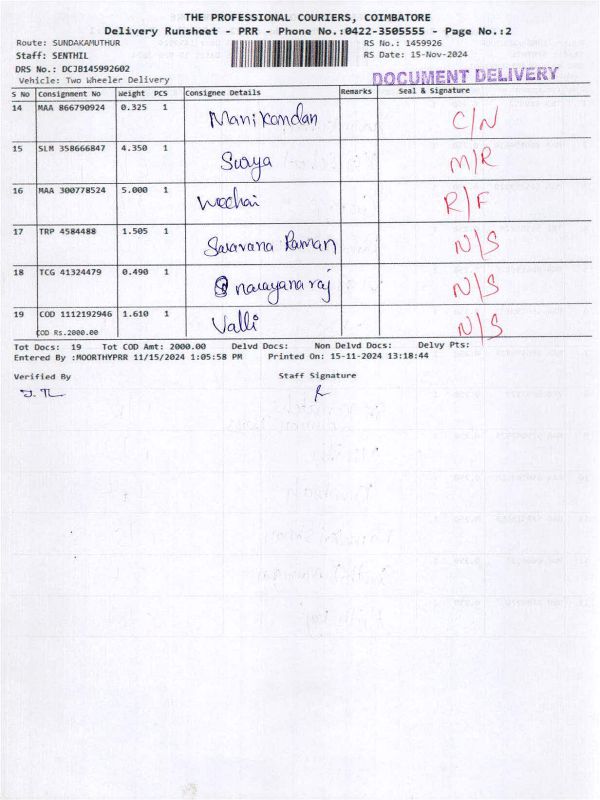 THE PROFESSIONAL COURIERS, COIMBATORE
Delivery Runsheet - PRR - Phone No.:0422-3505555 - Page No.:2
Route: SUNDAKAMUTHUR RS No.: 1459926
Staff: SENTHIL RS Date: 15-Nov-2024
DRS No.: DCJB145992602
Vehicle: Two Wheeler Delivery DOCUMENT DELIVERY
S No Consignment No Weight PCS Consignee Details Remarks Seal & Signature
14 MAA 866790924 0.325 1 Manikandan C/N
15 SLM 358666847 4.350 1 Surya M/R
16 MAA 300778524 5.000 1 R/F
17 TRP 4584488 1.505 1 Saravana Raman N/S
18 TCG 41324479 0.490 1 narayana raj N/S
19 COD 1112192946 1.610 1 Valli N/S
COD Rs.2000.00
Tot Docs: 19 Tot COD Amt: 2000.00 Delvd Docs: Non Delvd Docs: Delvy Pts:
Entered By :MOORTHYPRR 11/15/2024 1:05:58 PM Printed On: 15-11-2024 13:18:44
Verified By Staff Signature